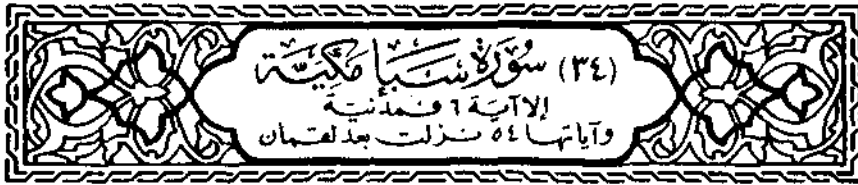 (٣٤) سُورَة سَبَإٍ مَكِّيَّة
إلا آية ٦ فمدنية
وآياتها ٥٤ نزلت بعد لقمان